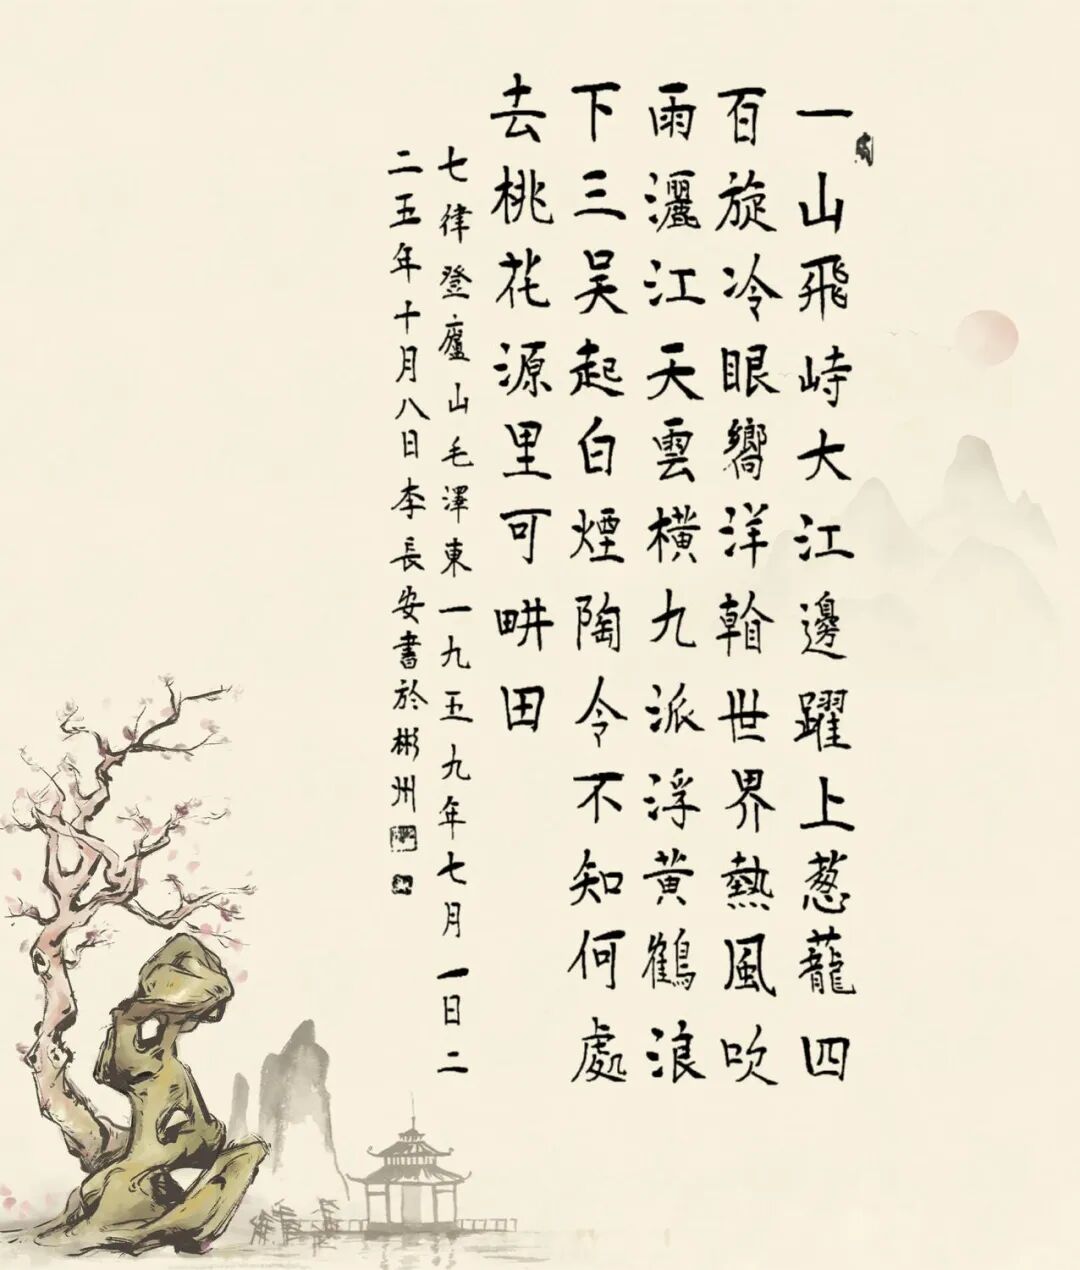 一山飛峙大江邊躍上葱蘢四
百旋冷眼嚮洋㫪世界熱風吹
雨灑江天雲橫九派浮黃鶴浪
下三吴起白煙陶令不知何處
去桃花源里可畊田
七律登廬山毛澤東一九五九年七月一日二
二五年十月八日李長安書於彬州